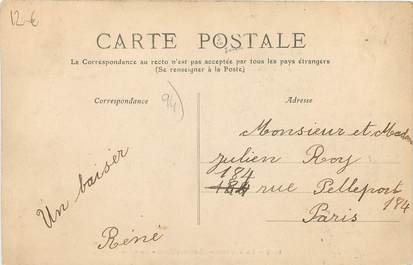 12 €
CARTE POSTALE
La Correspondance au recto n'est pas acceptée par tous les pays étrangers
(Se renseigner à la Poste)
Correspondance
94)
Adresse
Un baiser
Réné
Monsieur et Madame
Julien Roy
184
184 rue Pelleport 184
Paris